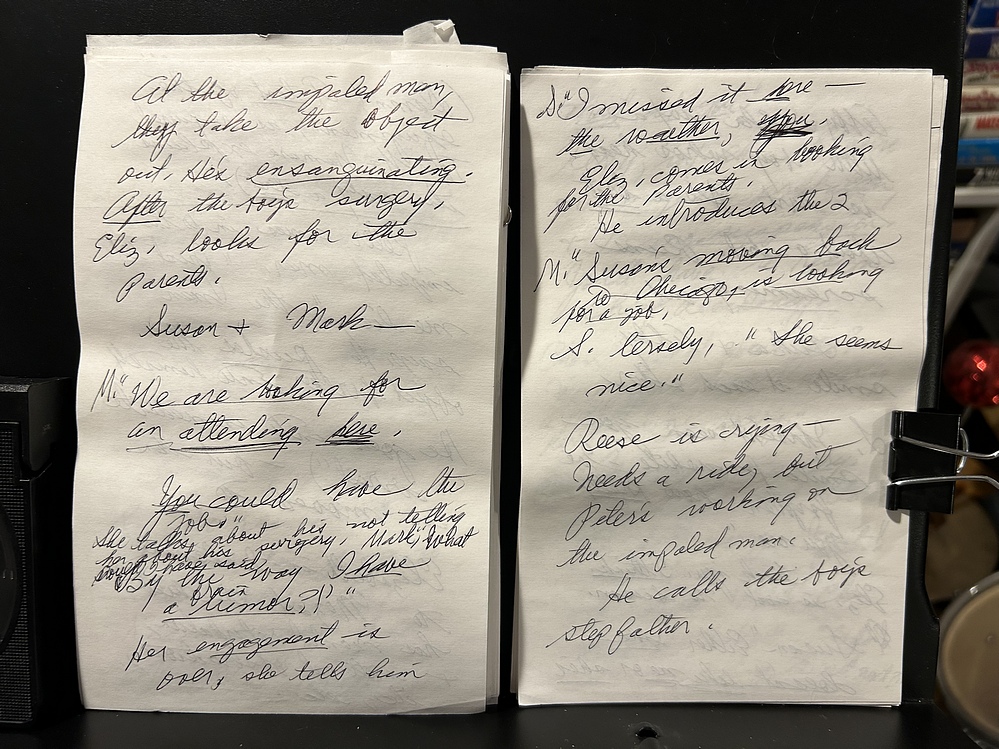 At the impaled man,
they take the object
out, He's ensanguinating.
After the boy's surgery,
Eliz, looks for the
parents.
Suson + Mark—
M: "We are looking for
an attending here.
You could have the
job."
She talks about his not telling
her about his surgery, Mark, "What
have said,
"By the way I have
a brain
tumor,?!"
Her engagement is
over, she tells him
S: "I missed it here —
the weather, you.
Eliz, comes in looking
for the parents.
He introduces the 2
M: "Suson's moving back
to Chicago, is looking
for a job,
S. tersely, "She seems
nice."
Reese is crying —
Needs a ride, but
Peter's working on
the impaled man.
He calls the boy's
step father.